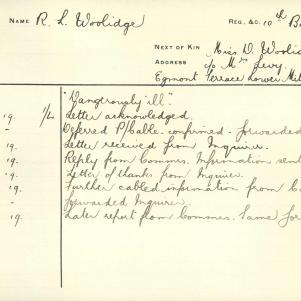 NAME R. L. Woolidge
REG. &C. 10th B
NEXT OF KIN Miss D. Wooli
ADDRESS c/o Mrs Levy.
Egmont Terrace Lower Mit
"Dangerously ill."
19. 1/2 Letter acknowledged.
- Deferred P/Cable. confirmed - forwarded
19. Letter received from Inquirer.
19. Reply from Commrs. Information sent
19. Letter of thanks from Inquirer
19. Further cabled information from C
- forwarded Inquirer.
19. Later report from Commrs. Same for